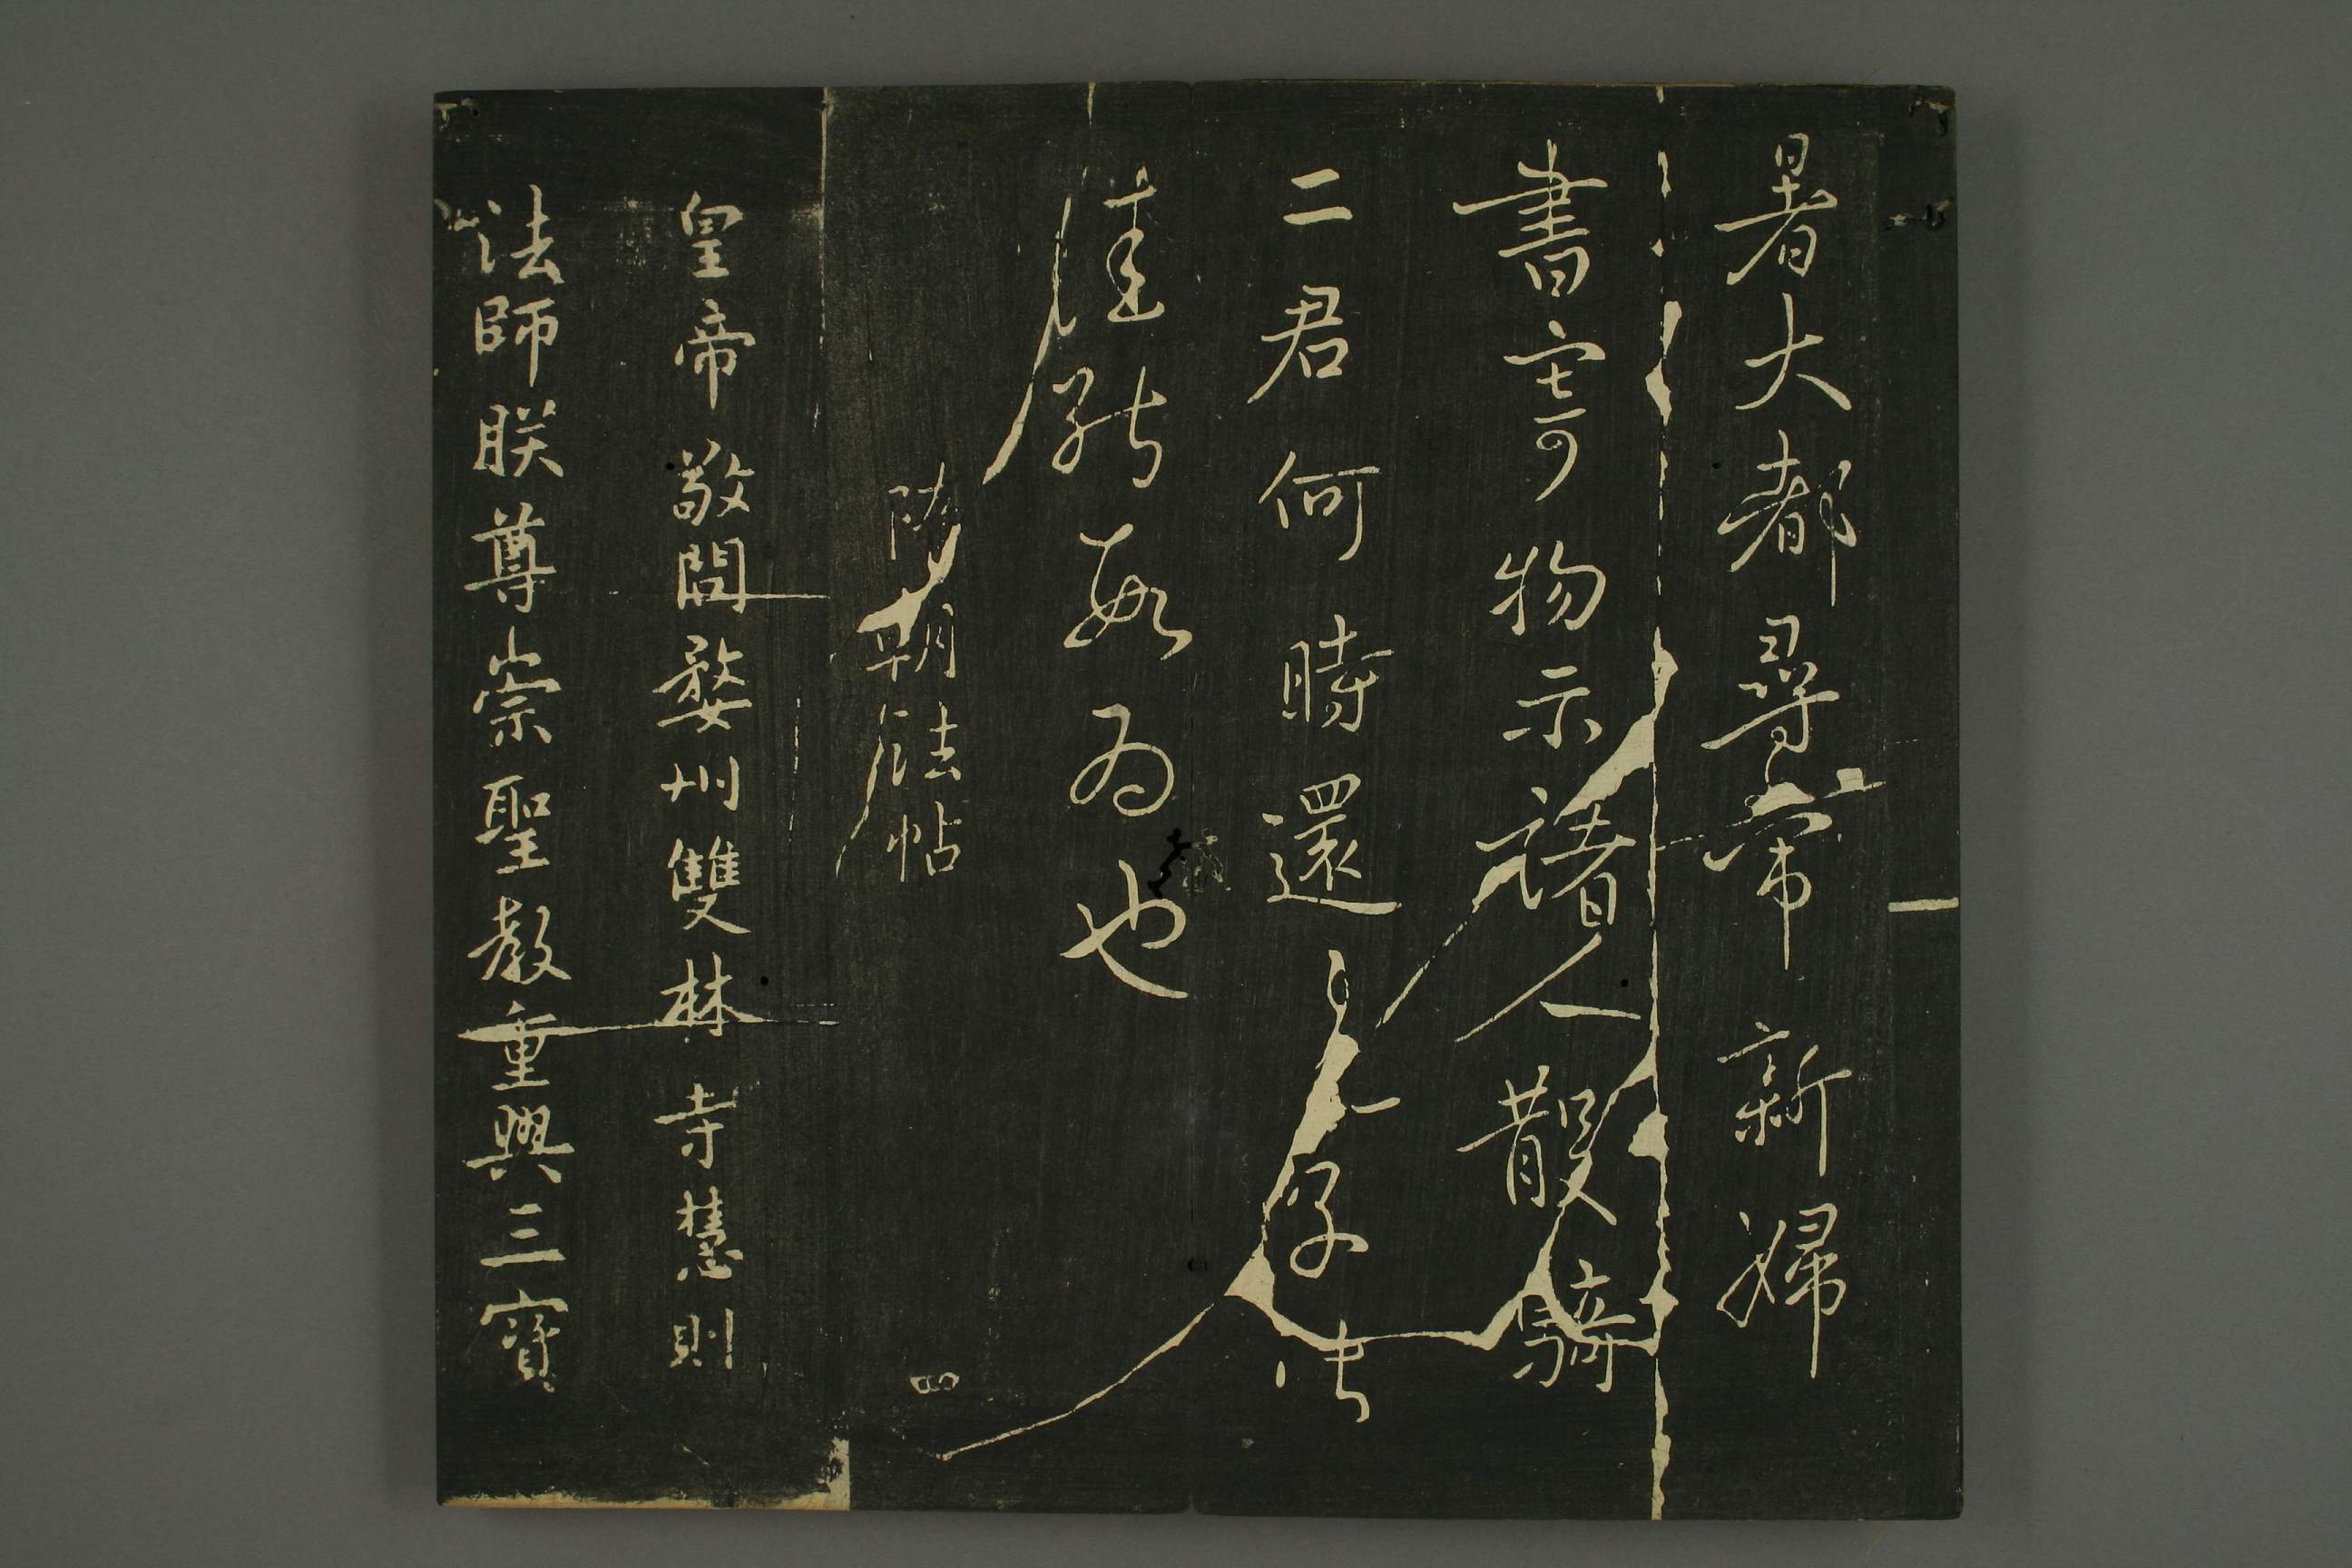 暑大都尋常新婦
書寄物示諸人散騎
二君何時還
能為也
隋朝法帖
四
皇帝敬問婺州雙林寺慧則
法師朕尊崇聖教重興三寶